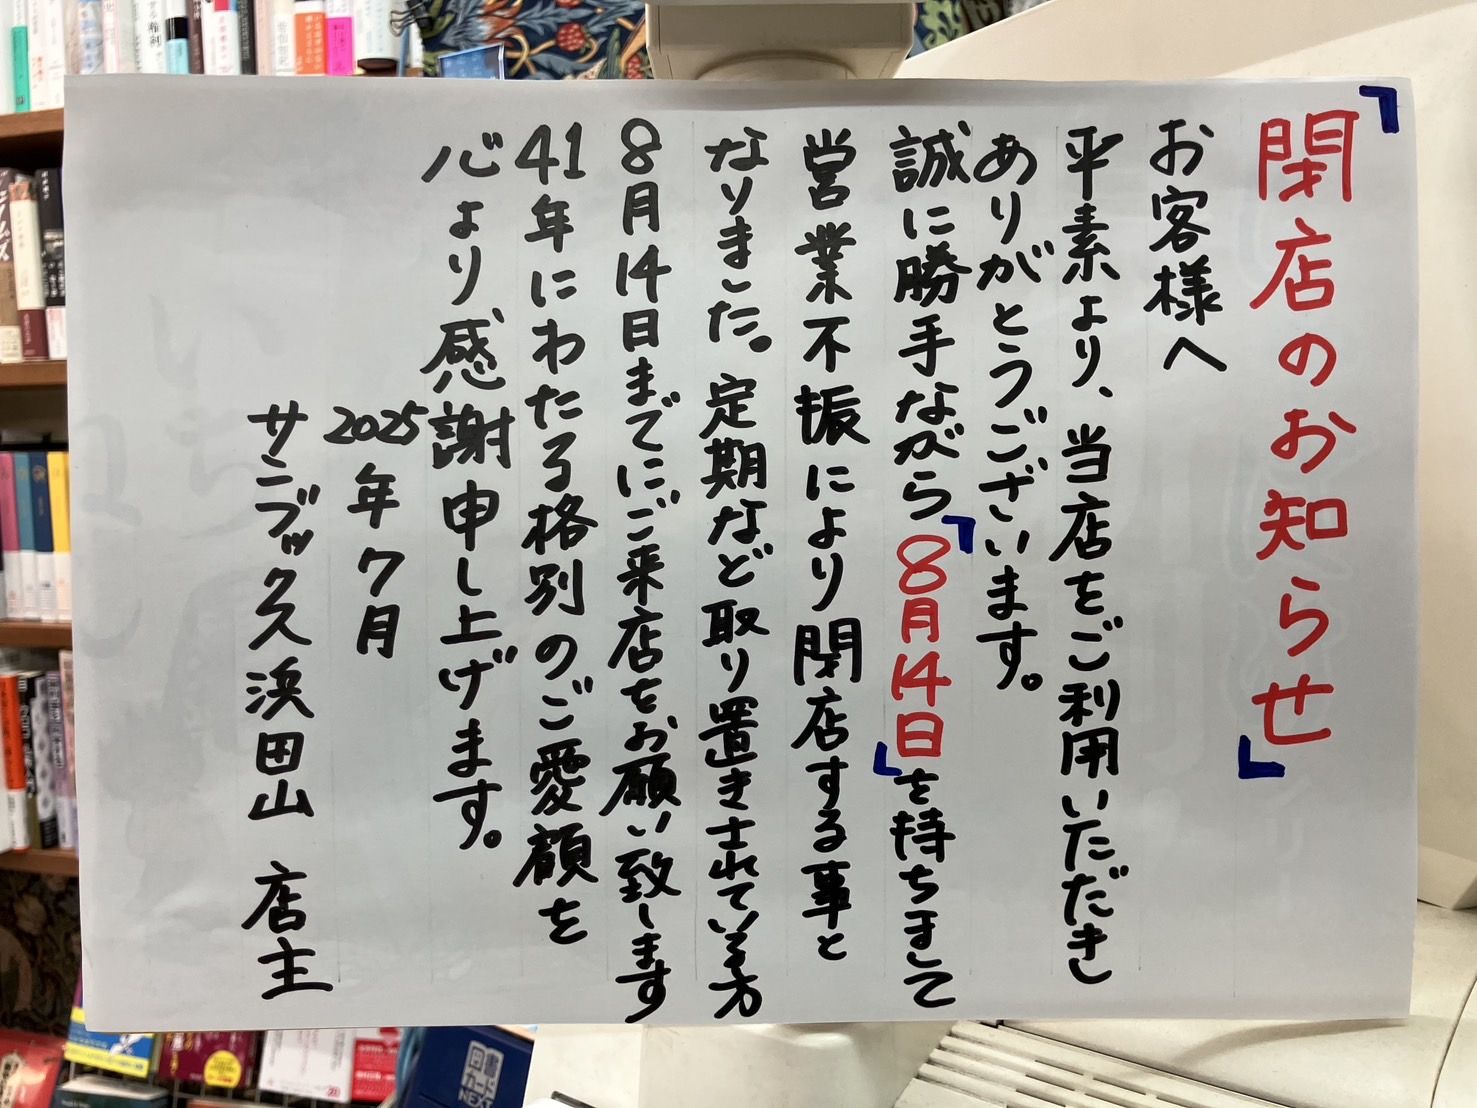 「閉店のお知らせ」
お客様へ
平素より、当店をご利用いただき
ありがとうございます。
誠に勝手ながら「8月14日」を持ちまして
営業不振により閉店する事と
なりました。定期など取り置きされている方
8月14日までにご来店をお願い致します
41年にわたる格別のご愛顧を
心より感謝申し上げます。
2025年7月
サンブックス浜田山 店主
図書
カード
NEXT